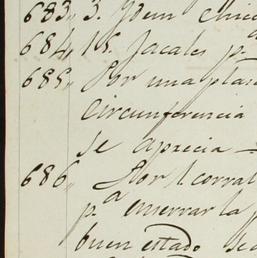 683,, 3. Ydem chic
684,, 15. Jacales p.
685,, Por una
circunferencia
se aprecia
686,, Por 1. corral
p.ª enserrar la
buen estado se